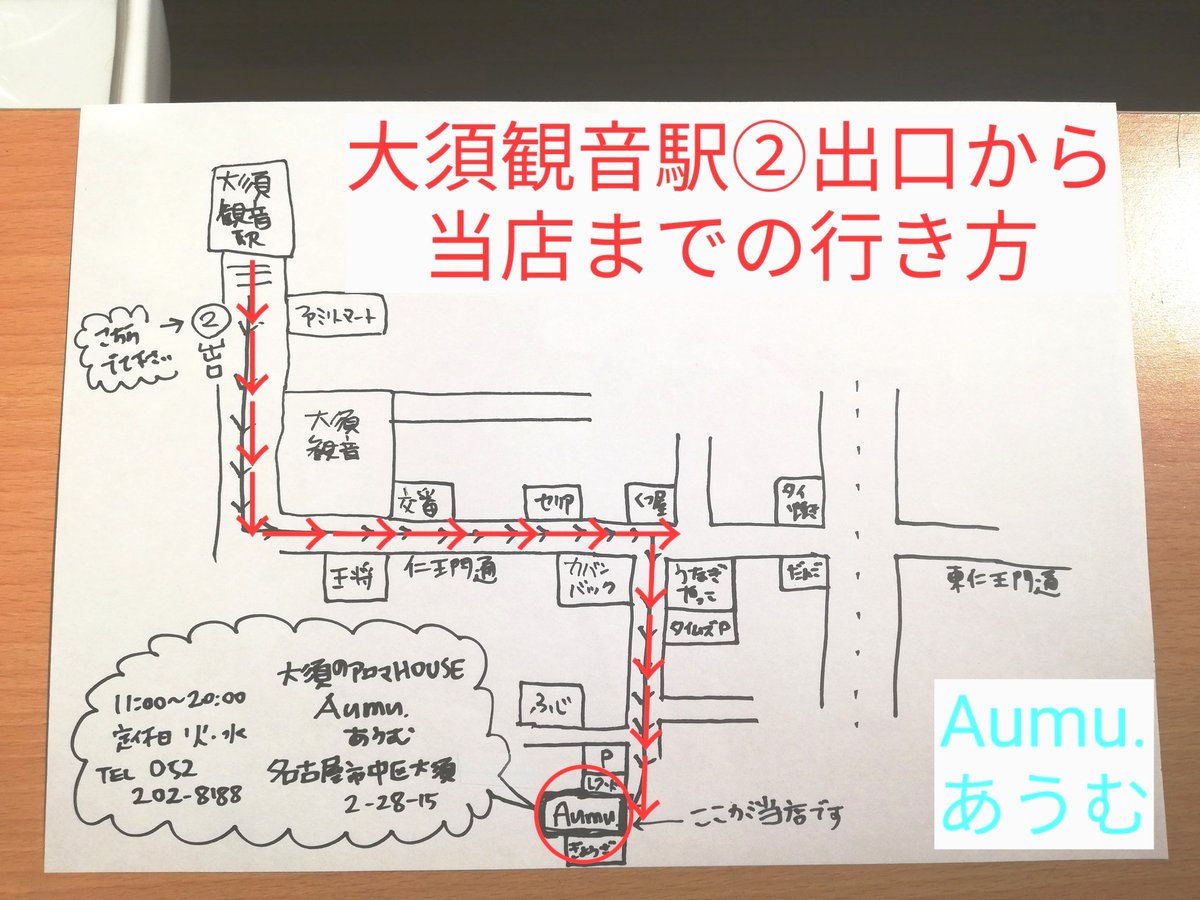 大須観音駅②出口から
当店までの行き方
大須
観音
駅
こちら
でて下さい
→
②
出
口
ファミリーマート
大須
観音
交番
セリア
くつ屋
タイ
焼き
王将
仁王門通
カバン
バック
うなぎ
やっこ
だんご
東仁王門通
タイムズP
ふじ
P
Aumu.
ぎょうざ
ここが当店です
大須のアロマHOUSE
Aumu.
あうむ
名古屋市中区大須
2-28-15
11:00〜20:00
定休日 火・水
TEL 052
202-8188
Aumu.
あうむ